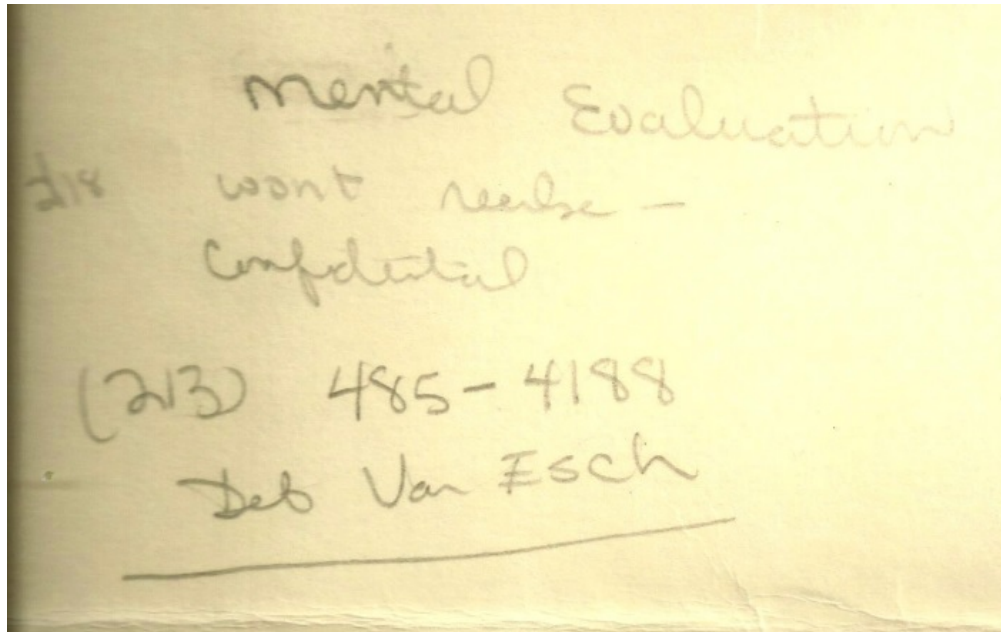 Mental Evaluation
218 wont
Confidential
(213) 485-4188
Deb Van Esch